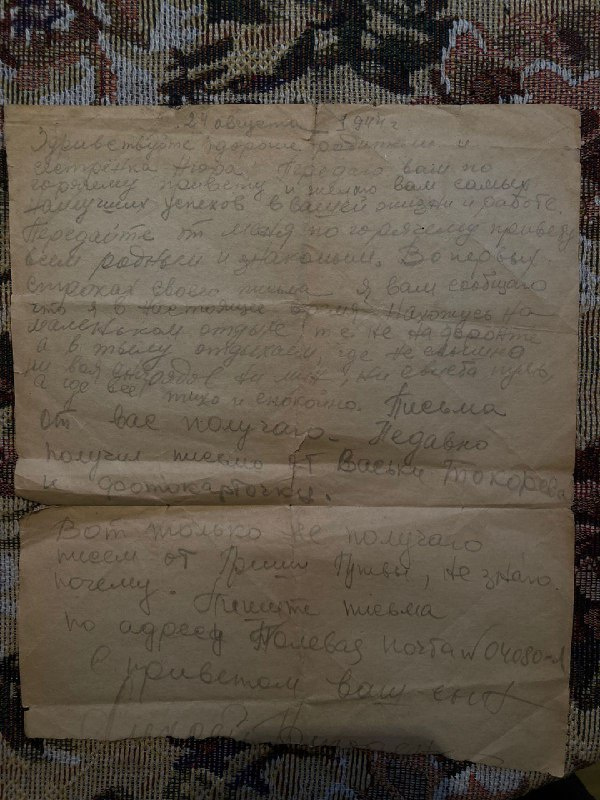 24 августа 1944 г
Здравствуйте дорогие родители и
сестрёнка Нюра. Передаю вам по
горячему привету и желаю вам самых
наилучших успехов в вашей жизни и работе.
Передайте от меня по горячему привету
всем родным и знакомым. Во первых
строках своего письма я вам сообщаю
что я в настоящие время нахожусь на
маленьком отдыхе т.е не на фронте
а в тылу отдыхаем, где не слышно
ни воя снарядов ни мин, ни свиста пуль,
а где всё тихо и спокойно. Письма
от вас получаю. Недавно
получил письмо от Васьки Токорева
и фотокарточку.
Вот только не получаю
писем от Гриши, не знаю
почему. Пишите письма
по адресу Полевая почта N 04080-Я
С приветом ваш сын
Алексей